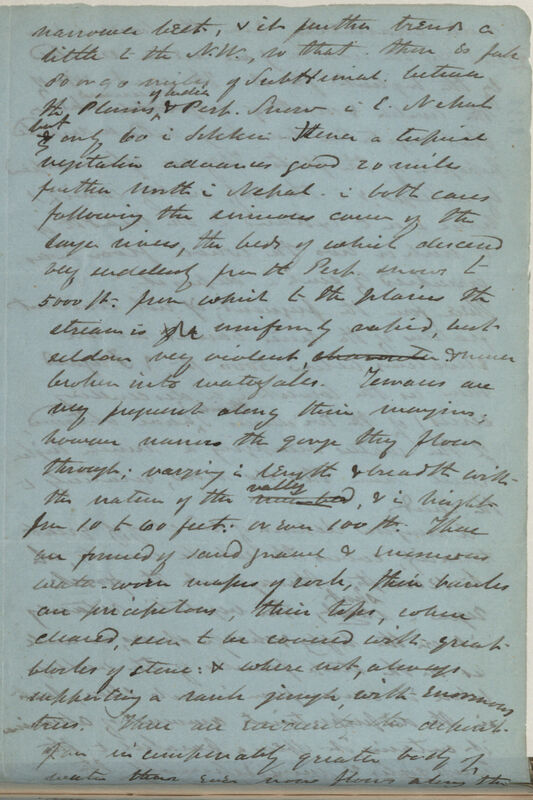 narrower belt, & it further trends a
little to the N.W., so that there is full
80 or 90 miles of SubHimal. between
the Plains of India & Perp. Snow in E. Nepal
but only 60 in Sikkim. Hence a tropical
vegetation advances good 20 miles
further North in Nepal. in both cases
following the sinuous course of the
large rivers, the beds of which descend
very suddenly from the Perp. snows to
5000 ft. from which to the plains the
stream is uniformly rapid, but
seldom very violent, & never
broken into waterfalls. Terraces are
very frequent along their margins,
however narrow the gorge they flow
through; varying in length & breadth with
the nature of the valley, & in height
from 10 to 60 feet. or even 100 ft. These
are formed of sand gravel & enormous
water-worn masses of rock, their banks
are precipitous, their tops, when
cleared, seen to be covered with great
blocks of stone: & where not, always
supporting a rank jungle, with enormous
trees. These are the deposit
of an incomparably greater body of
water than ever now flows along the